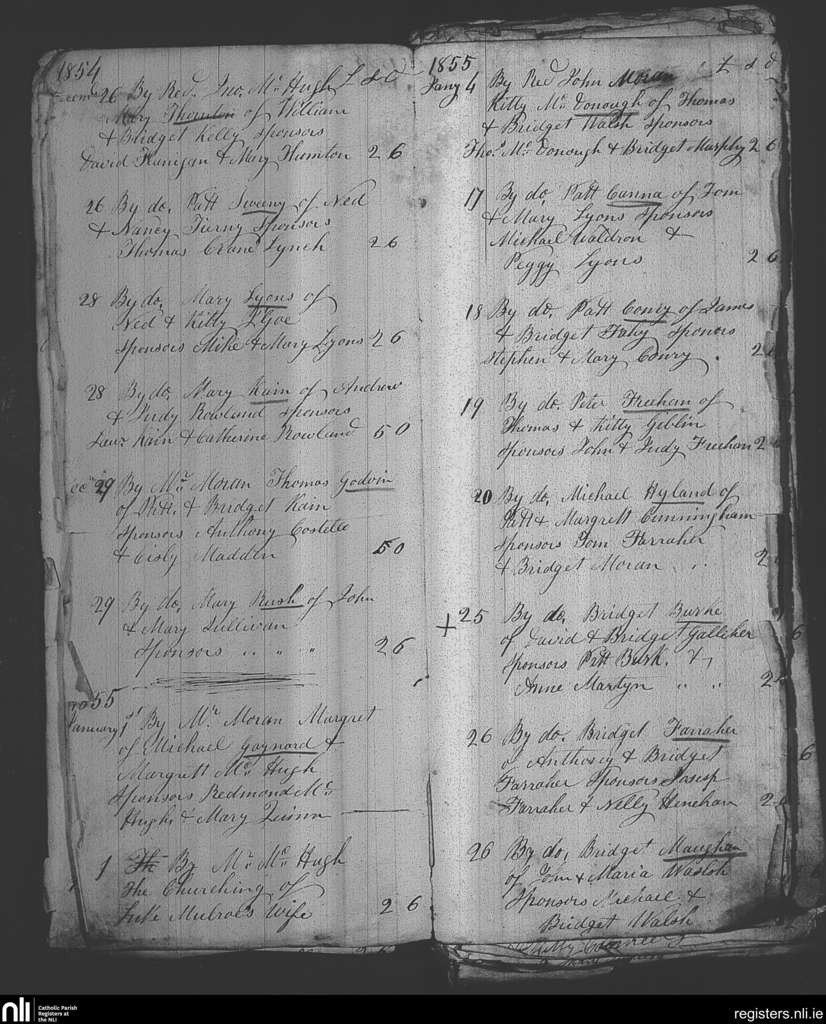 1854
26 By Rev. Jno. Mc Hugh £ s d
Mary Thornton of William
& Bridget Kelly Sponsors
David Flanigan & Mary Thornton 2 6
26 By do. Patt Sweeny of Ned
& Nancy Tierny Sponsors
Thomas Crane Lynch 2 6
28 By do, Mary Lyons of
Ned & Kitty
Sponsors Mike & Mary Lyons 2 6
28 By do, Mary Kain of Andrew
& Judy Rowland Sponsors
Kain & Catherine Rowland 5 0
29 By Mr. Moran Thomas Godwin
of Patt. & Bridget Kain
Sponsors Anthony Costello
& Cisly Madden 5 0
29 By do, Mary Rush of John
& Mary Sullivan
Sponsors " " " 2 6
55
January 1st By Mr Moran Margret
of Michael Gaynard &
Margrett Mc Hugh
Sponsors Redmond Mc
Hugh & Mary Quinn
1 By Mr Mc Hugh
The Churching of
Luke Mulroes Wife 2 6
1855
Jany 4 By Rev John Moran £ s d
Kitty Mc Donough of Thomas
& Bridget Walsh Sponsors
Thos. Mc Donough & Bridget Murphy 2 6
17 By do, Patt Canna of Tom
& Mary Lyons Sponsors
Michael Waldron &
Peggy Lyons 2 6
18 By do. Patt Conry of James
& Bridget Fahy Sponors
Stephen & Mary Conry . 2
19 By do. Peter Freehan of
Thomas & Kitty Giblin
Sponsors John & Judy Freehan 2
20 By do, Michael Hyland of
Patt & Margrett Cunningham
Sponsors Tom Farraher
& Bridget Moran . . 2
+ 25 By do, Bridget Burke
of David & Bridget Galleher 6
Sponsors Patt Burk. &
Anne Martyn " " 2
26 By do. Bridget Farraher
of Anthony & Bridget 6
Farraher Sponsors Joseph
Farraher & Nelly Henehan 2
26 By do, Bridget Maughan
of Tom & Maria Walsh
Sponsors Michael &
Bridget Walsh
nli Catholic Parish
Registers at
the NLI
registers.nli.ie